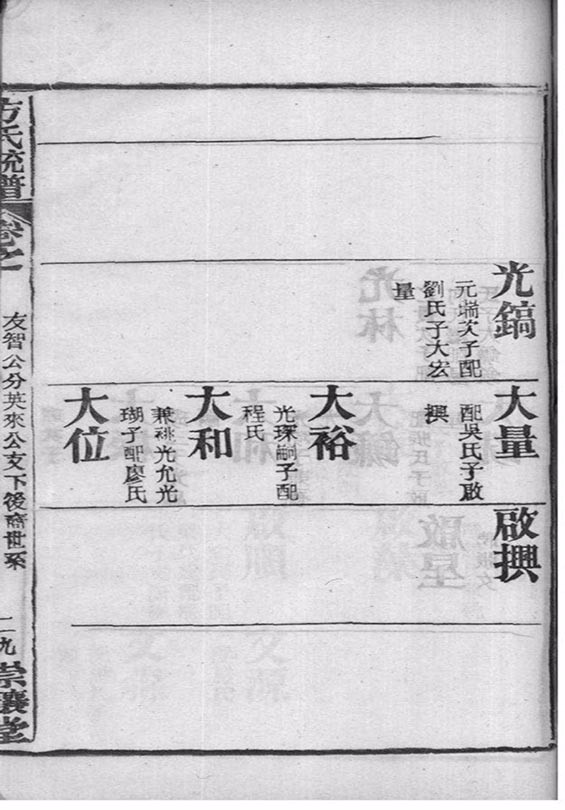 光鎬
元瑞次子配
劉氏子大宏
量
大量
配吳氏子啟
興
啟興
大裕
光琛嗣子配
程氏
大和
兼祧光允光
瑚子配廖氏
大位
方氏統譜
卷之
友智公分英來公支下後裔世系
二九
崇讓堂